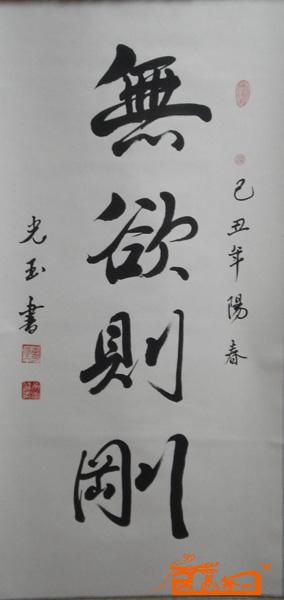 己丑年陽春
無欲則剛
光玉書